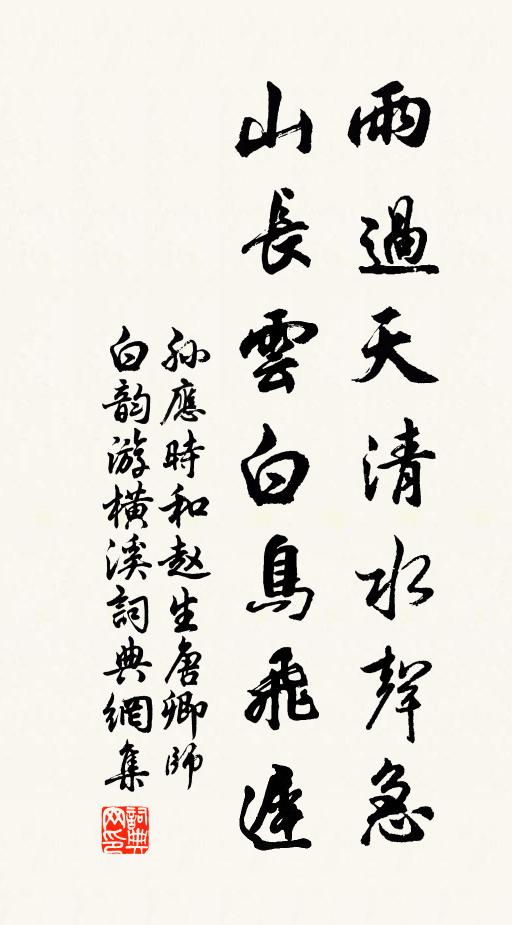 雨過天清水聲急
山長雲白鳥飛遲
孙應時和赵生唐卿師
白韵游橫溪詞典網集
詞典网印